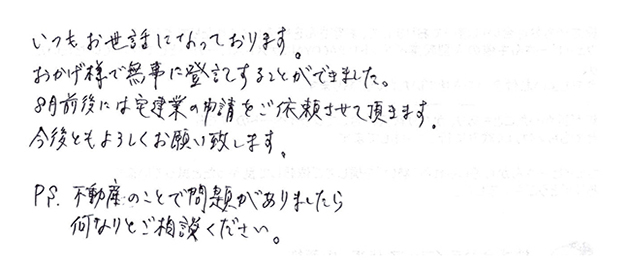 いつもお世話になっております。
おかげ様で無事に登記することができました。
8月前後には宅建業の申請をご依頼させて頂きます。
今後ともよろしくお願い致します。
P.S. 不動産のことで問題がありましたら
何なりとご相談ください。